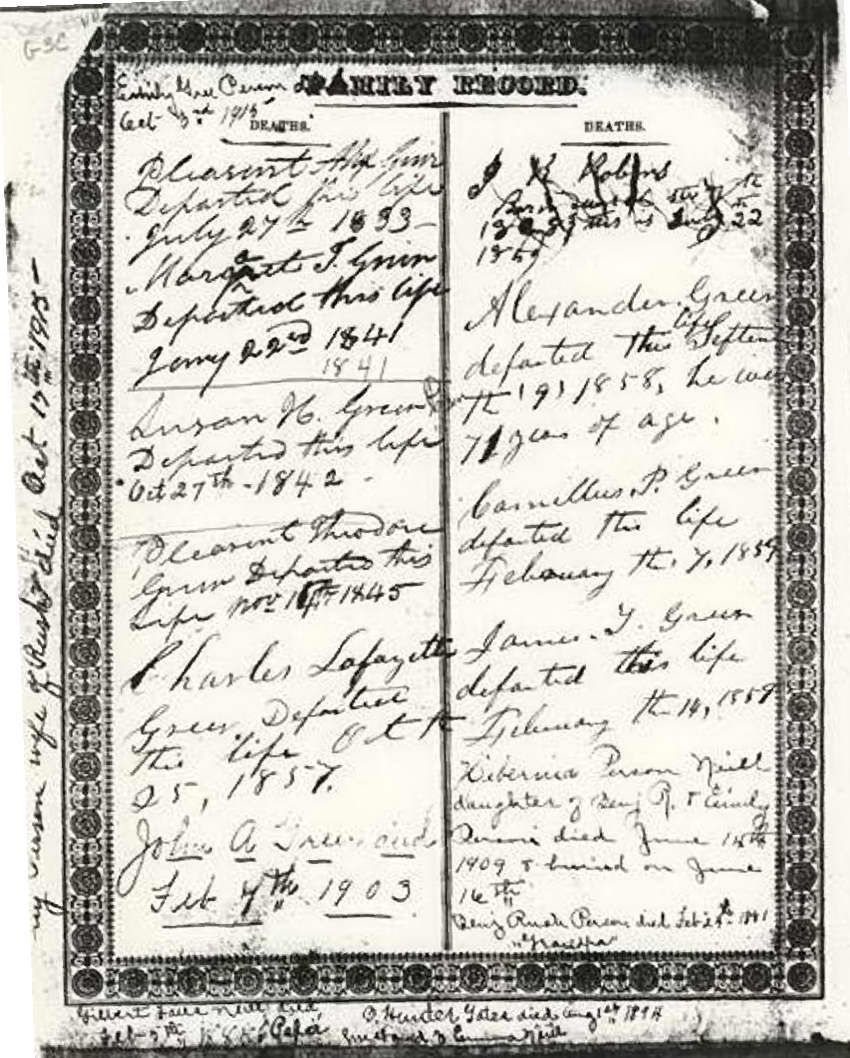 G-3C
FAMILY RECORD.
Emily Person
Oct 1915
DEATHS.
Pleasant Green
Departed this life
July 27th 1833
Margaret T. Green
Departed this life
Jany 22nd 1841
1841
Susan H. Green
Departed this life
Oct 27th - 1842
Pleasant Theodore
Green Departed this
Life Nov 1845
Charles Lafayette
Green Departed
this life Oct th
25, 1857.
John A Green died
Feb 4th 1903
DEATHS.
J K Robins
July 22
Alexander Green
departed this life
th 9, 1858, he was
71 years of age.
Camillus P. Green
departed this life
February th. 7, 1859
James T. Green
departed this life
February th 14, 1859
Hibernia Person Neill
daughter of Benj R. & Emily
Person died June
1909 & buried on June
16th
Benj Rush Person died Feb
"Grandpa"
wife of Rush died Oct 1915-
Gilbert Neill died
Feb
Hunter Gates died Aug 1st
husband of Emma Neill